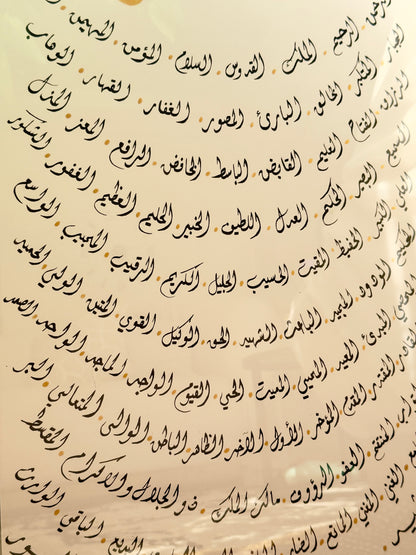 الرحمن الرحيم الملك القدوس السلام المؤمن المهيمن
الجبار المتكبر الخالق البارئ المصور الغفار القهار الوهاب
الرزاق الفتاح العليم القابض الباسط الخافض الرافع المعز المذل
السميع البصير الحكم العدل اللطيف الخبير الحليم العظيم الغفور الشكور
العلي الكبير الحفيظ المقيت الحسيب الجليل الكريم الرقيب المجيب الواسع
الحكيم الودود المجيد الباعث الشهيد الحق الوكيل القوي المتين الولي الحميد
المحصي المبدئ المعيد المحيي المميت الحي القيوم الواجد الماجد الواحد الصمد
القادر المقتدر المقدم المؤخر الأول الآخر الظاهر الباطن الوالي المتعالي البر
التواب المنتقم العفو الرؤوف مالك الملك ذو الجلال والاكرام المقسط
الغني المغني المانع الضار البديع الباقي الوارث